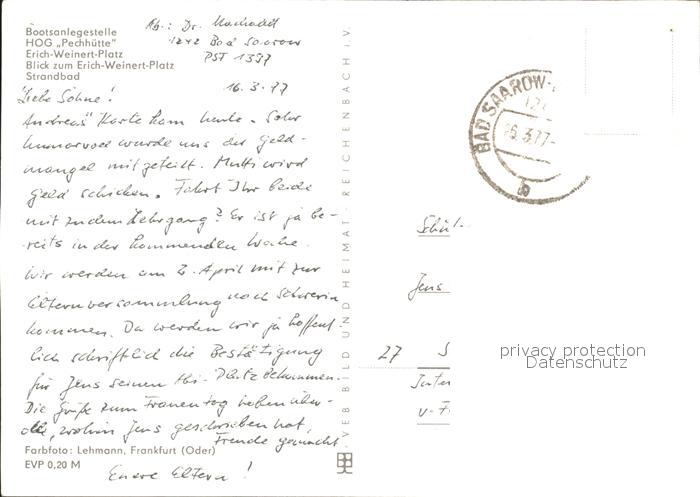 Bootsanlegestelle
HOG „Pechhütte"
Erich-Weinert-Platz
Blick zum Erich-Weinert-Platz
Strandbad
Ab.: Dr.
1242 Bad Saarow
PST 1337
16.3.77
Liebe Söhne!
Andreas' Karte kam heute. Sehr
humorvoll wurde uns der Geld-
mangel mitgeteilt. Mutti wird
Geld schicken. Fahrt Ihr beide
mit zu dem Lehrgang? Er ist ja be-
reits in der kommenden Woche.
Wir werden am 2. April mit zur
Elternversammlung nach Schwerin
kommen. Da werden wir ja hoffent-
lich schriftlich die Bestätigung
für Jens seinen Abi-Platz bekommen.
Die Grüße zum Frauentag haben über-
all, wohin Jens geschrieben hat,
Freude gemacht.
Eure Eltern!
Farbfoto: Lehmann, Frankfurt (Oder)
EVP 0,20 M
VEB BILD UND HEIMAT REICHENBACH i. V.
BAD SAAROW-
124
16.3.77-
b
Schül
Jens
27 S
Inter
v.-F
privacy protection
Datenschutz